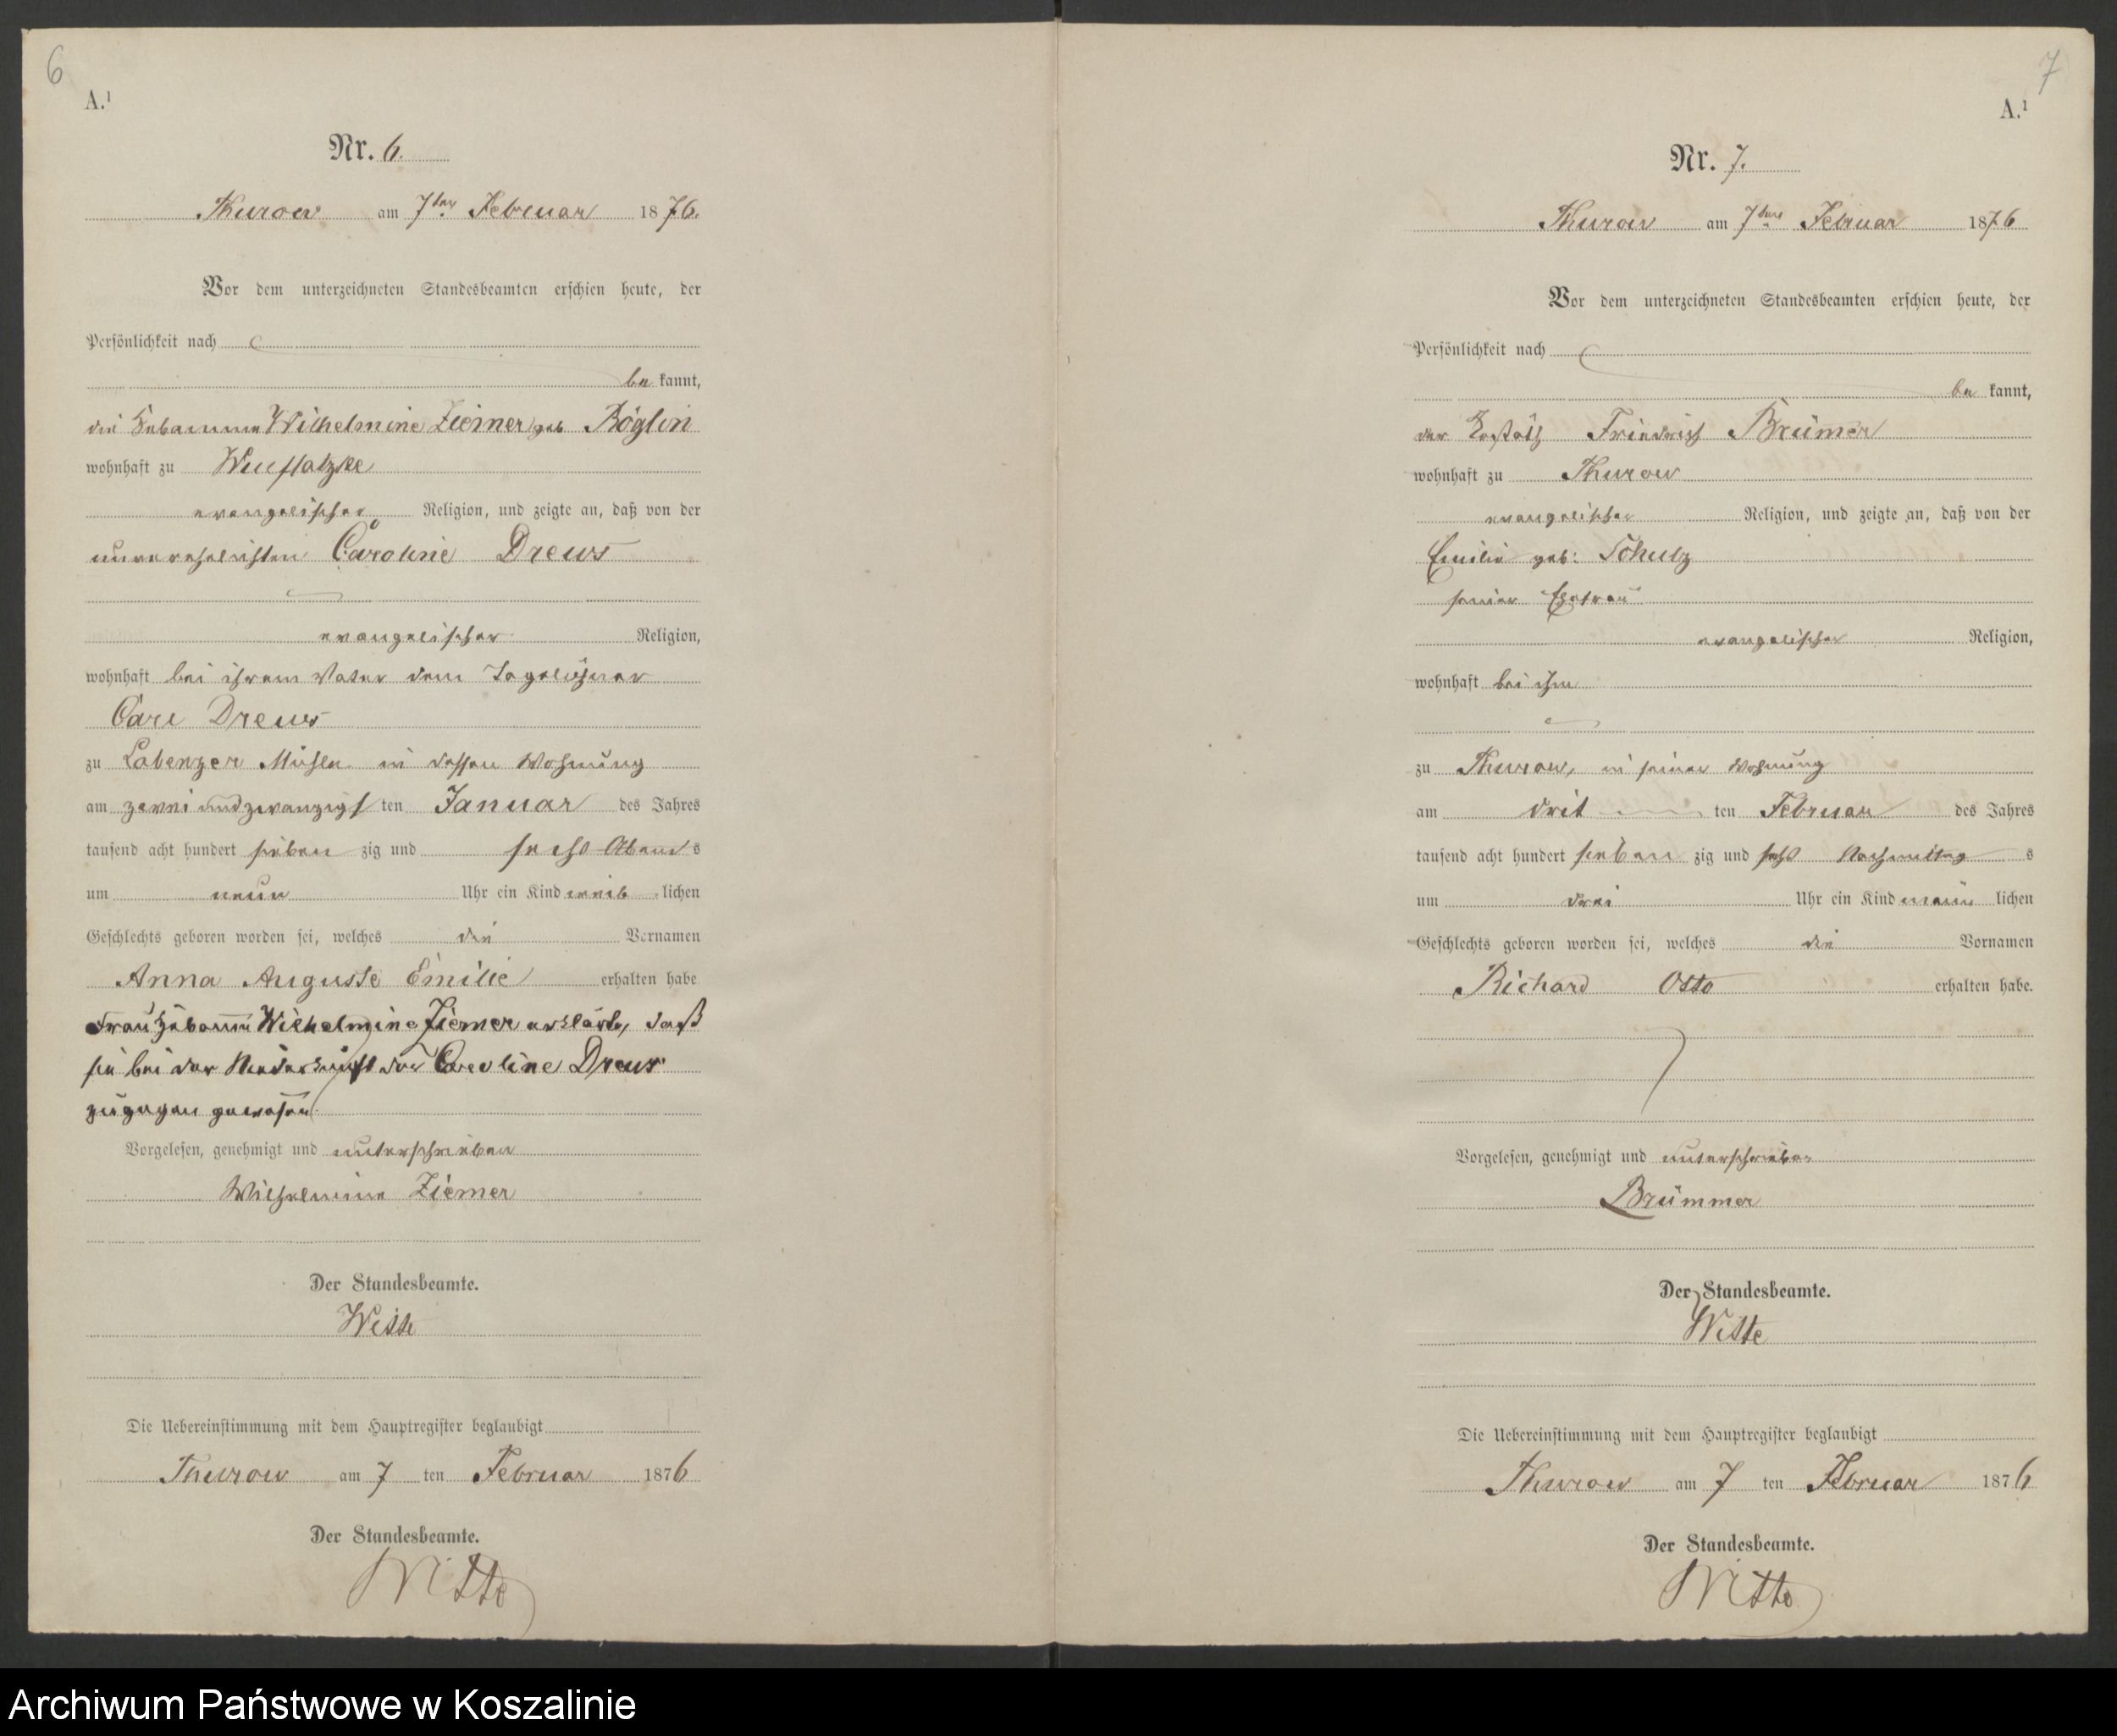 6
A.¹
Nr. 6.
Thurow am 7ten Februar 1876.
Vor dem unterzeichneten Standesbeamten erschien heute, der
Persönlichkeit nach
be kannt,
die Hebamme Wilhelmine Ziemer geb Röglin
wohnhaft zu
evangelischer Religion, und zeigte an, daß von der
unverehelichten Caroline Drews
evangelischer Religion,
wohnhaft bei ihrem Vater dem Tagelöhner
Carl Drews
zu Labenzer Mühle in dessen Wohnung
am zwei und zwanzigs ten Januar des Jahres
tausend acht hundert sieben zig und sechs Abends
um neun Uhr ein Kind weib lichen
Geschlechts geboren worden sei, welches die Vornamen
Anna Auguste Emilie erhalten habe
Frau Hebamme Wilhelmine Ziemer erklärte, daß
sie bei der Niederkunft der Caroline Drews
zugegen gewesen
Vorgelesen, genehmigt und unterschrieben
Wilhelmine Ziemer
Der Standesbeamte.
Witte
Die Uebereinstimmung mit dem Hauptregister beglaubigt
Thurow am 7 ten Februar 1876
Der Standesbeamte.
Witte
7
A.¹
Nr. 7.
Thurow am 7ten Februar 1876
Vor dem unterzeichneten Standesbeamten erschien heute, der
Persönlichkeit nach
be kannt,
der Kossäth Friedrich Brümer
wohnhaft zu Thurow
evangelischer Religion, und zeigte an, daß von der
Emilie geb: Schulz
seiner Ehefrau
evangelischer Religion,
wohnhaft bei ihm
zu Thurow, in seiner Wohnung
am drit ten Februar des Jahres
tausend acht hundert sieben zig und sechs Nachmittags
um drei Uhr ein Kind männ lichen
Geschlechts geboren worden sei, welches die Vornamen
Richard Otto erhalten habe.
Vorgelesen, genehmigt und unterschrieben
Brümmer
Der Standesbeamte.
Witte
Die Uebereinstimmung mit dem Hauptregister beglaubigt
Thurow am 7 ten Februar 1876
Der Standesbeamte.
Witte
Archiwum Państwowe w Koszalinie